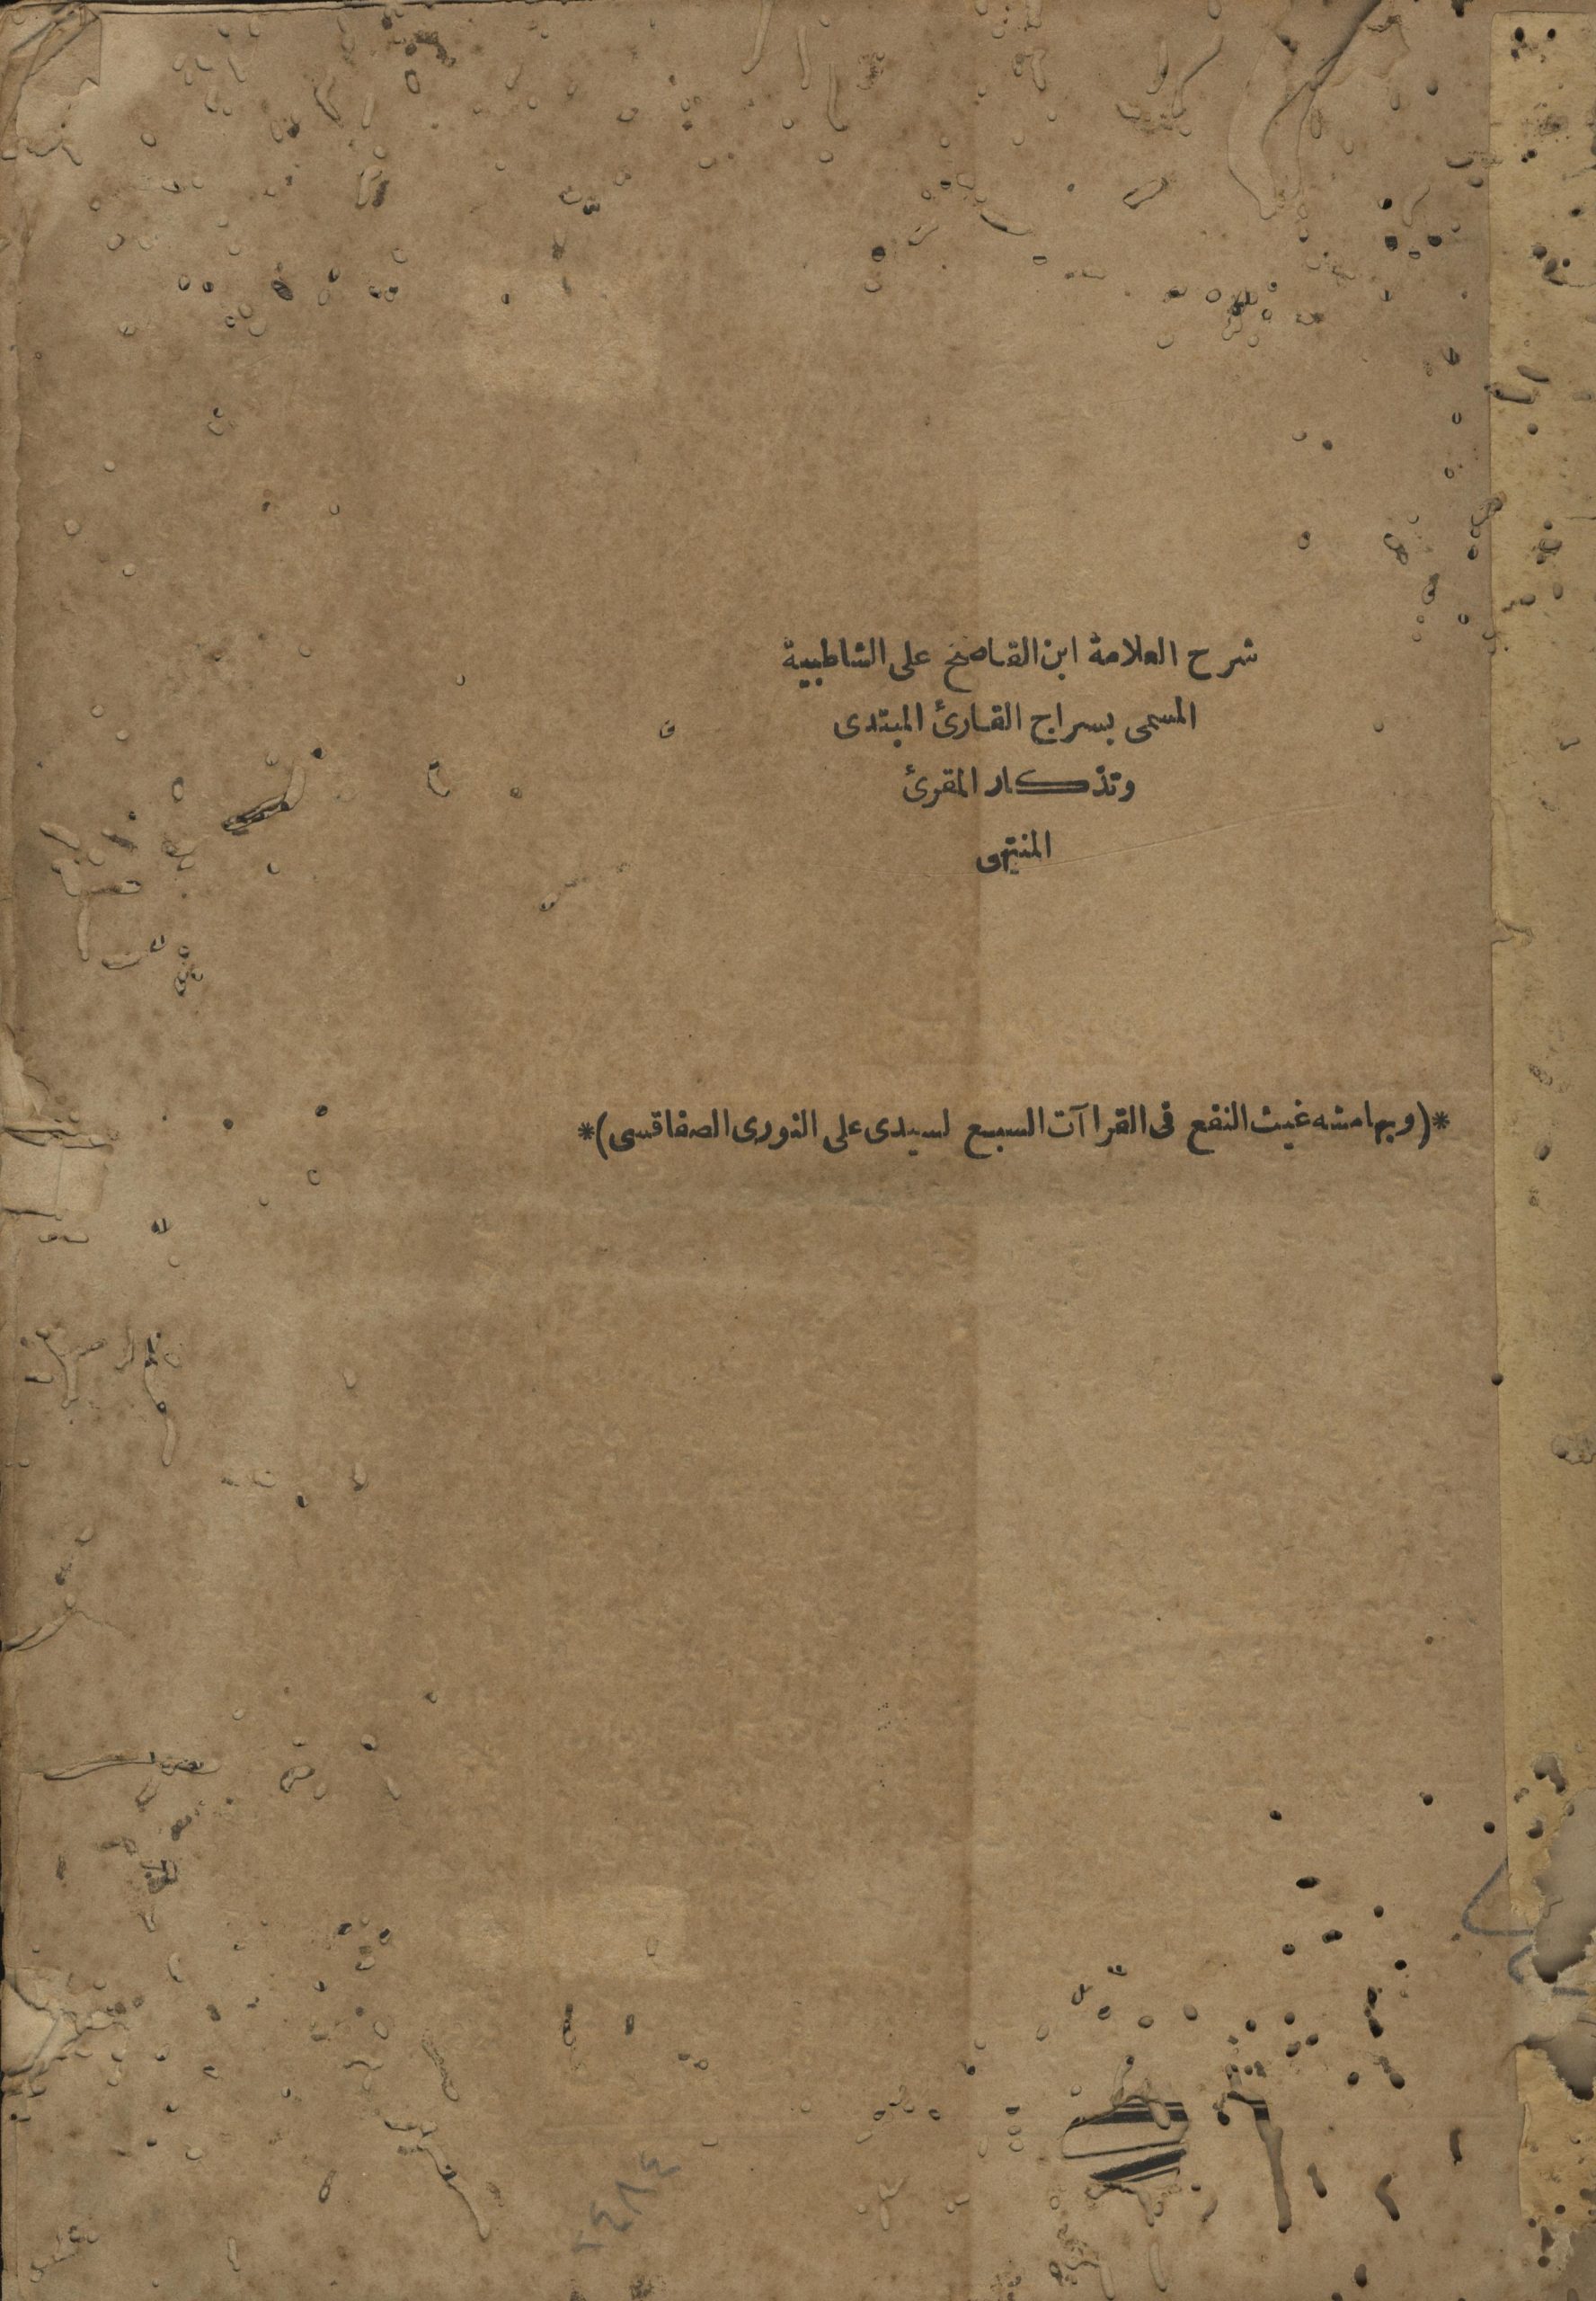 شرح العلامة ابن القاصح على الشاطبية
المسمى بسراج القارئ المبتدى
وتذكار المقرئ
المنتهى
*(وبهامشه غيث النفع فى القراآت السبع لسيدى على النورى الصفاقسى)*